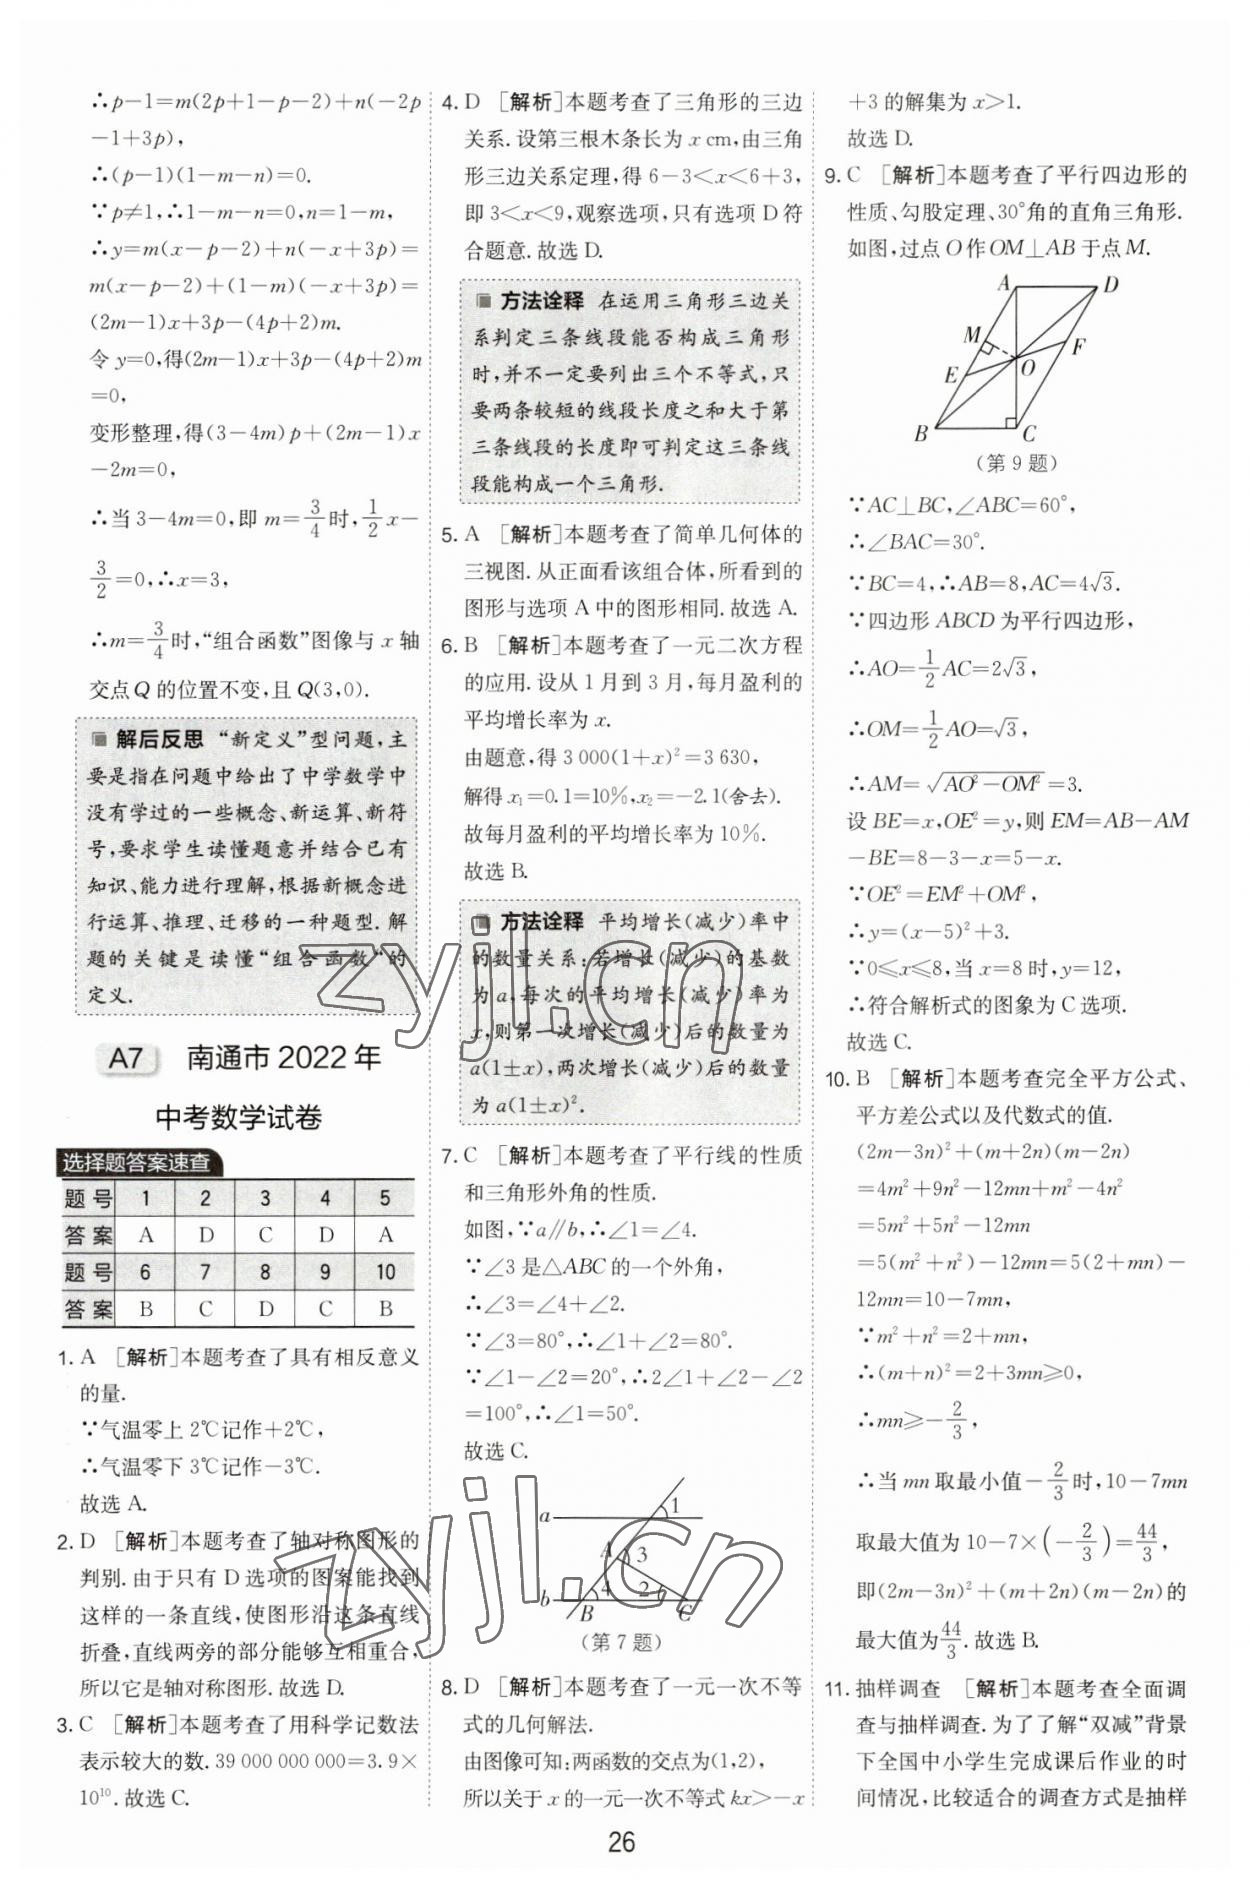 ∴p－1＝m(2p＋1－p－2)＋n(－2p
－1＋3p),
∴(p－1)(1－m－n)＝0.
∵p≠1,∴1－m－n＝0,n＝1－m,
∴y＝m(x－p－2)＋n(－x＋3p)＝
m(x－p－2)＋(1－m)(－x＋3p)＝
(2m－1)x＋3p－(4p＋2)m.
令 y＝0,得(2m－1)x＋3p－(4p＋2)m
＝0,
变形整理,得(3－4m)p＋(2m－1)x
－2m＝0,
∴当 3－4m＝0,即 m＝3/4时,1/2x－
3/2＝0,∴x＝3,
∴m＝3/4时,“组合函数”图像与 x 轴
交点 Q 的位置不变,且 Q(3,0).
解后反思 “新定义”型问题,主
要是指在问题中给出了中学数学中
没有学过的一些概念、新运算、新符
号,要求学生读懂题意并结合已有
知识、能力进行理解,根据新概念进
行运算、推理、迁移的一种题型.解
题的关键是读懂“组合函数”的
定义.
A7 南通市 2022 年
中考数学试卷
选择题答案速查
题号 1 2 3 4 5
答案 A D C D A
题号 6 7 8 9 10
答案 B C D C B
1. A [解析]本题考查了具有相反意义
的量.
∵气温零上 2℃记作＋2℃,
∴气温零下 3℃记作－3℃.
故选 A.
2. D [解析]本题考查了轴对称图形的
判别.由于只有 D 选项的图案能找到
这样的一条直线,使图形沿这条直线
折叠,直线两旁的部分能够互相重合,
所以它是轴对称图形.故选 D.
3. C [解析]本题考查了用科学记数法
表示较大的数.39 000 000 000＝3.9×
10¹⁰.故选 C.
4. D [解析]本题考查了三角形的三边
关系.设第三根木条长为 x cm,由三角
形三边关系定理,得 6－3＜x＜6＋3,
即 3＜x＜9,观察选项,只有选项 D 符
合题意.故选 D.
方法诠释 在运用三角形三边关
系判定三条线段能否构成三角形
时,并不一定要列出三个不等式,只
要两条较短的线段长度之和大于第
三条线段的长度即可判定这三条线
段能构成一个三角形.
5. A [解析]本题考查了简单几何体的
三视图.从正面看该组合体,所看到的
图形与选项 A 中的图形相同.故选 A.
6. B [解析]本题考查了一元二次方程
的应用.设从 1 月到 3 月,每月盈利的
平均增长率为 x.
由题意,得 3 000(1＋x)²＝3 630,
解得 x₁＝0.1＝10%,x₂＝－2.1(舍去).
故每月盈利的平均增长率为 10%.
故选 B.
方法诠释 平均增长(减少)率中
的数量关系:若增长(减少)的基数
为 a,每次的平均增长(减少)率为
x,则第一次增长(减少)后的数量为
a(1±x),两次增长(减少)后的数量
为 a(1±x)².
7. C [解析]本题考查了平行线的性质
和三角形外角的性质.
如图,∵a∥b,∴∠1＝∠4.
∵∠3 是△ABC 的一个外角,
∴∠3＝∠4＋∠2.
∵∠3＝80°,∴∠1＋∠2＝80°.
∵∠1－∠2＝20°,∴2∠1＋∠2－∠2
＝100°,∴∠1＝50°.
故选 C.
a
1
A
3
b
4
2
B
C
(第 7 题)
8. D [解析]本题考查了一元一次不等
式的几何解法.
由图像可知:两函数的交点为(1,2),
所以关于 x 的一元一次不等式 kx＞－x
＋3 的解集为 x＞1.
故选 D.
9. C [解析]本题考查了平行四边形的
性质、勾股定理、30°角的直角三角形.
如图,过点 O 作 OM⊥AB 于点 M.
A
D
M
F
E
O
B
C
(第 9 题)
∵AC⊥BC,∠ABC＝60°,
∴∠BAC＝30°.
∵BC＝4,∴AB＝8,AC＝4√3.
∵四边形 ABCD 为平行四边形,
∴AO＝1/2AC＝2√3,
∴OM＝1/2AO＝√3,
∴AM＝√(AO²－OM²)＝3.
设 BE＝x,OE²＝y,则 EM＝AB－AM
－BE＝8－3－x＝5－x.
∵OE²＝EM²＋OM²,
∴y＝(x－5)²＋3.
∵0≤x≤8,当 x＝8 时,y＝12,
∴符合解析式的图象为 C 选项.
故选 C.
10. B [解析]本题考查完全平方公式、
平方差公式以及代数式的值.
(2m－3n)²＋(m＋2n)(m－2n)
＝4m²＋9n²－12mn＋m²－4n²
＝5m²＋5n²－12mn
＝5(m²＋n²)－12mn＝5(2＋mn)－
12mn＝10－7mn,
∵m²＋n²＝2＋mn,
∴(m＋n)²＝2＋3mn≥0,
∴mn≥－2/3,
∴当 mn 取最小值－2/3时,10－7mn
取最大值为 10－7×(－2/3)＝44/3,
即(2m－3n)²＋(m＋2n)(m－2n)的
最大值为44/3.故选 B.
11. 抽样调查 [解析]本题考查全面调
查与抽样调查.为了了解“双减”背景
下全国中小学生完成课后作业的时
间情况,比较适合的调查方式是抽样
26
zyjl.cn
zyjl.cn